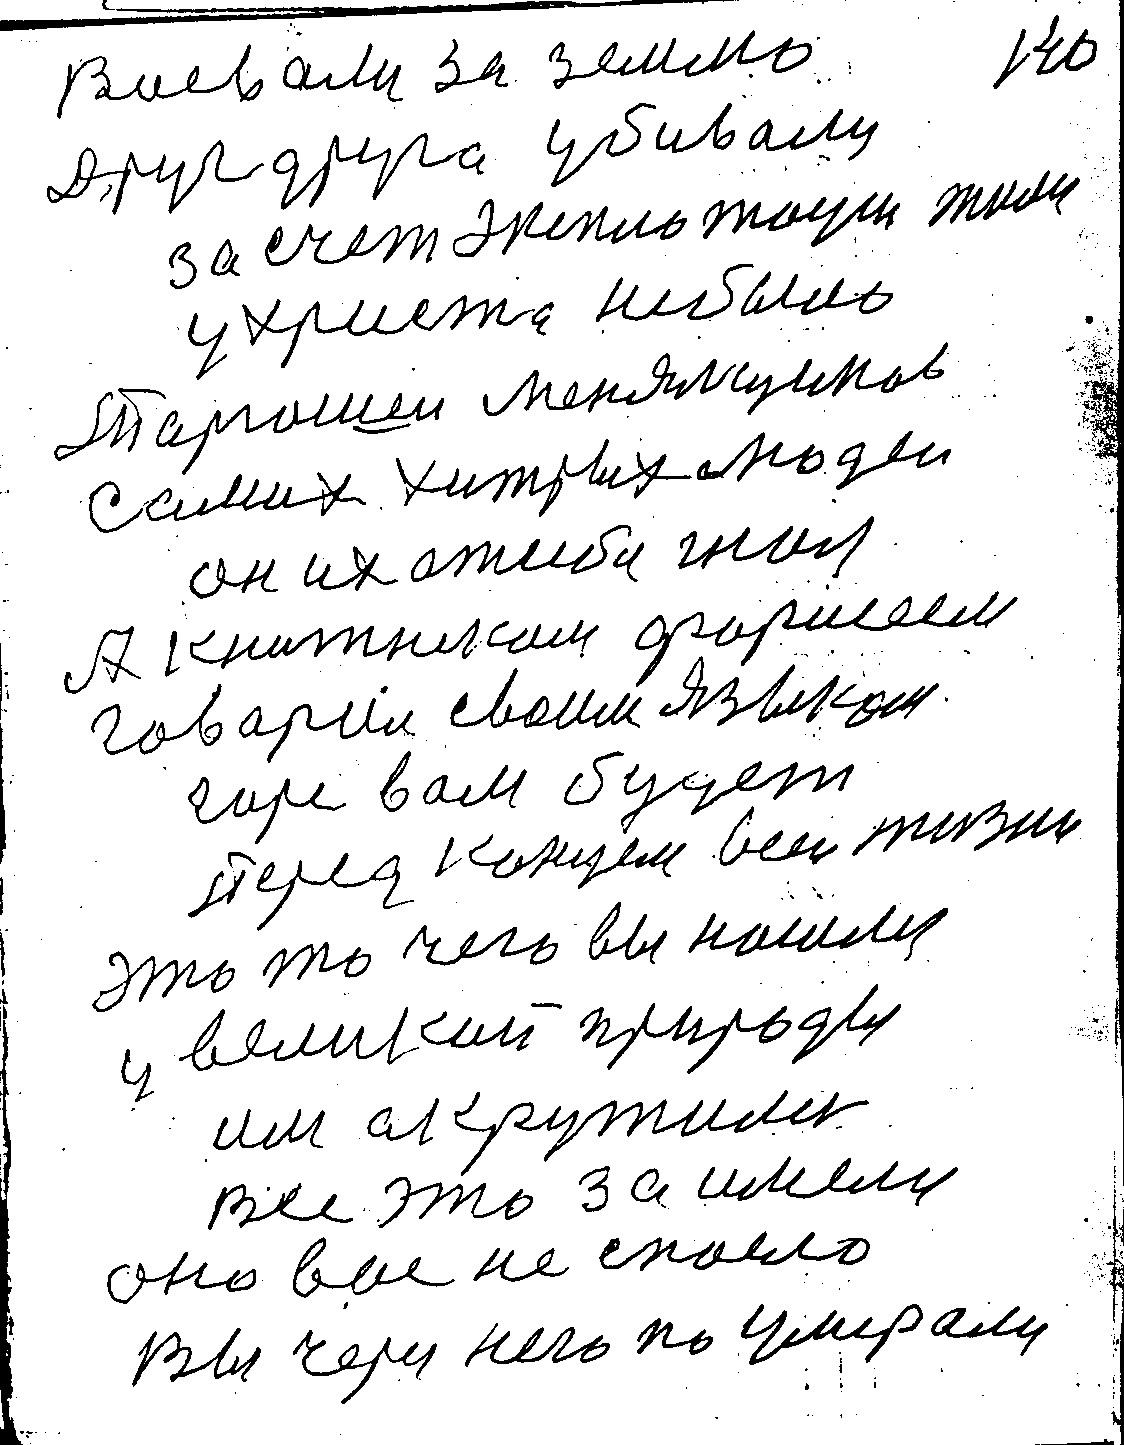 Воевали за землю 140
Друг друга убивали
за счет Эксплотации жили
у христа небыло
Таргошей менялщиков
Самих хитрых людеи
он их атсебя гнал
А Книжникам фарисеем
говарил своим языком
горе вам будет
перед концем всеи жизни
это то чего вы нашли
у великой природы
им акружили
все это заимели
оно вас не спасло
Вы чериз него по умирали